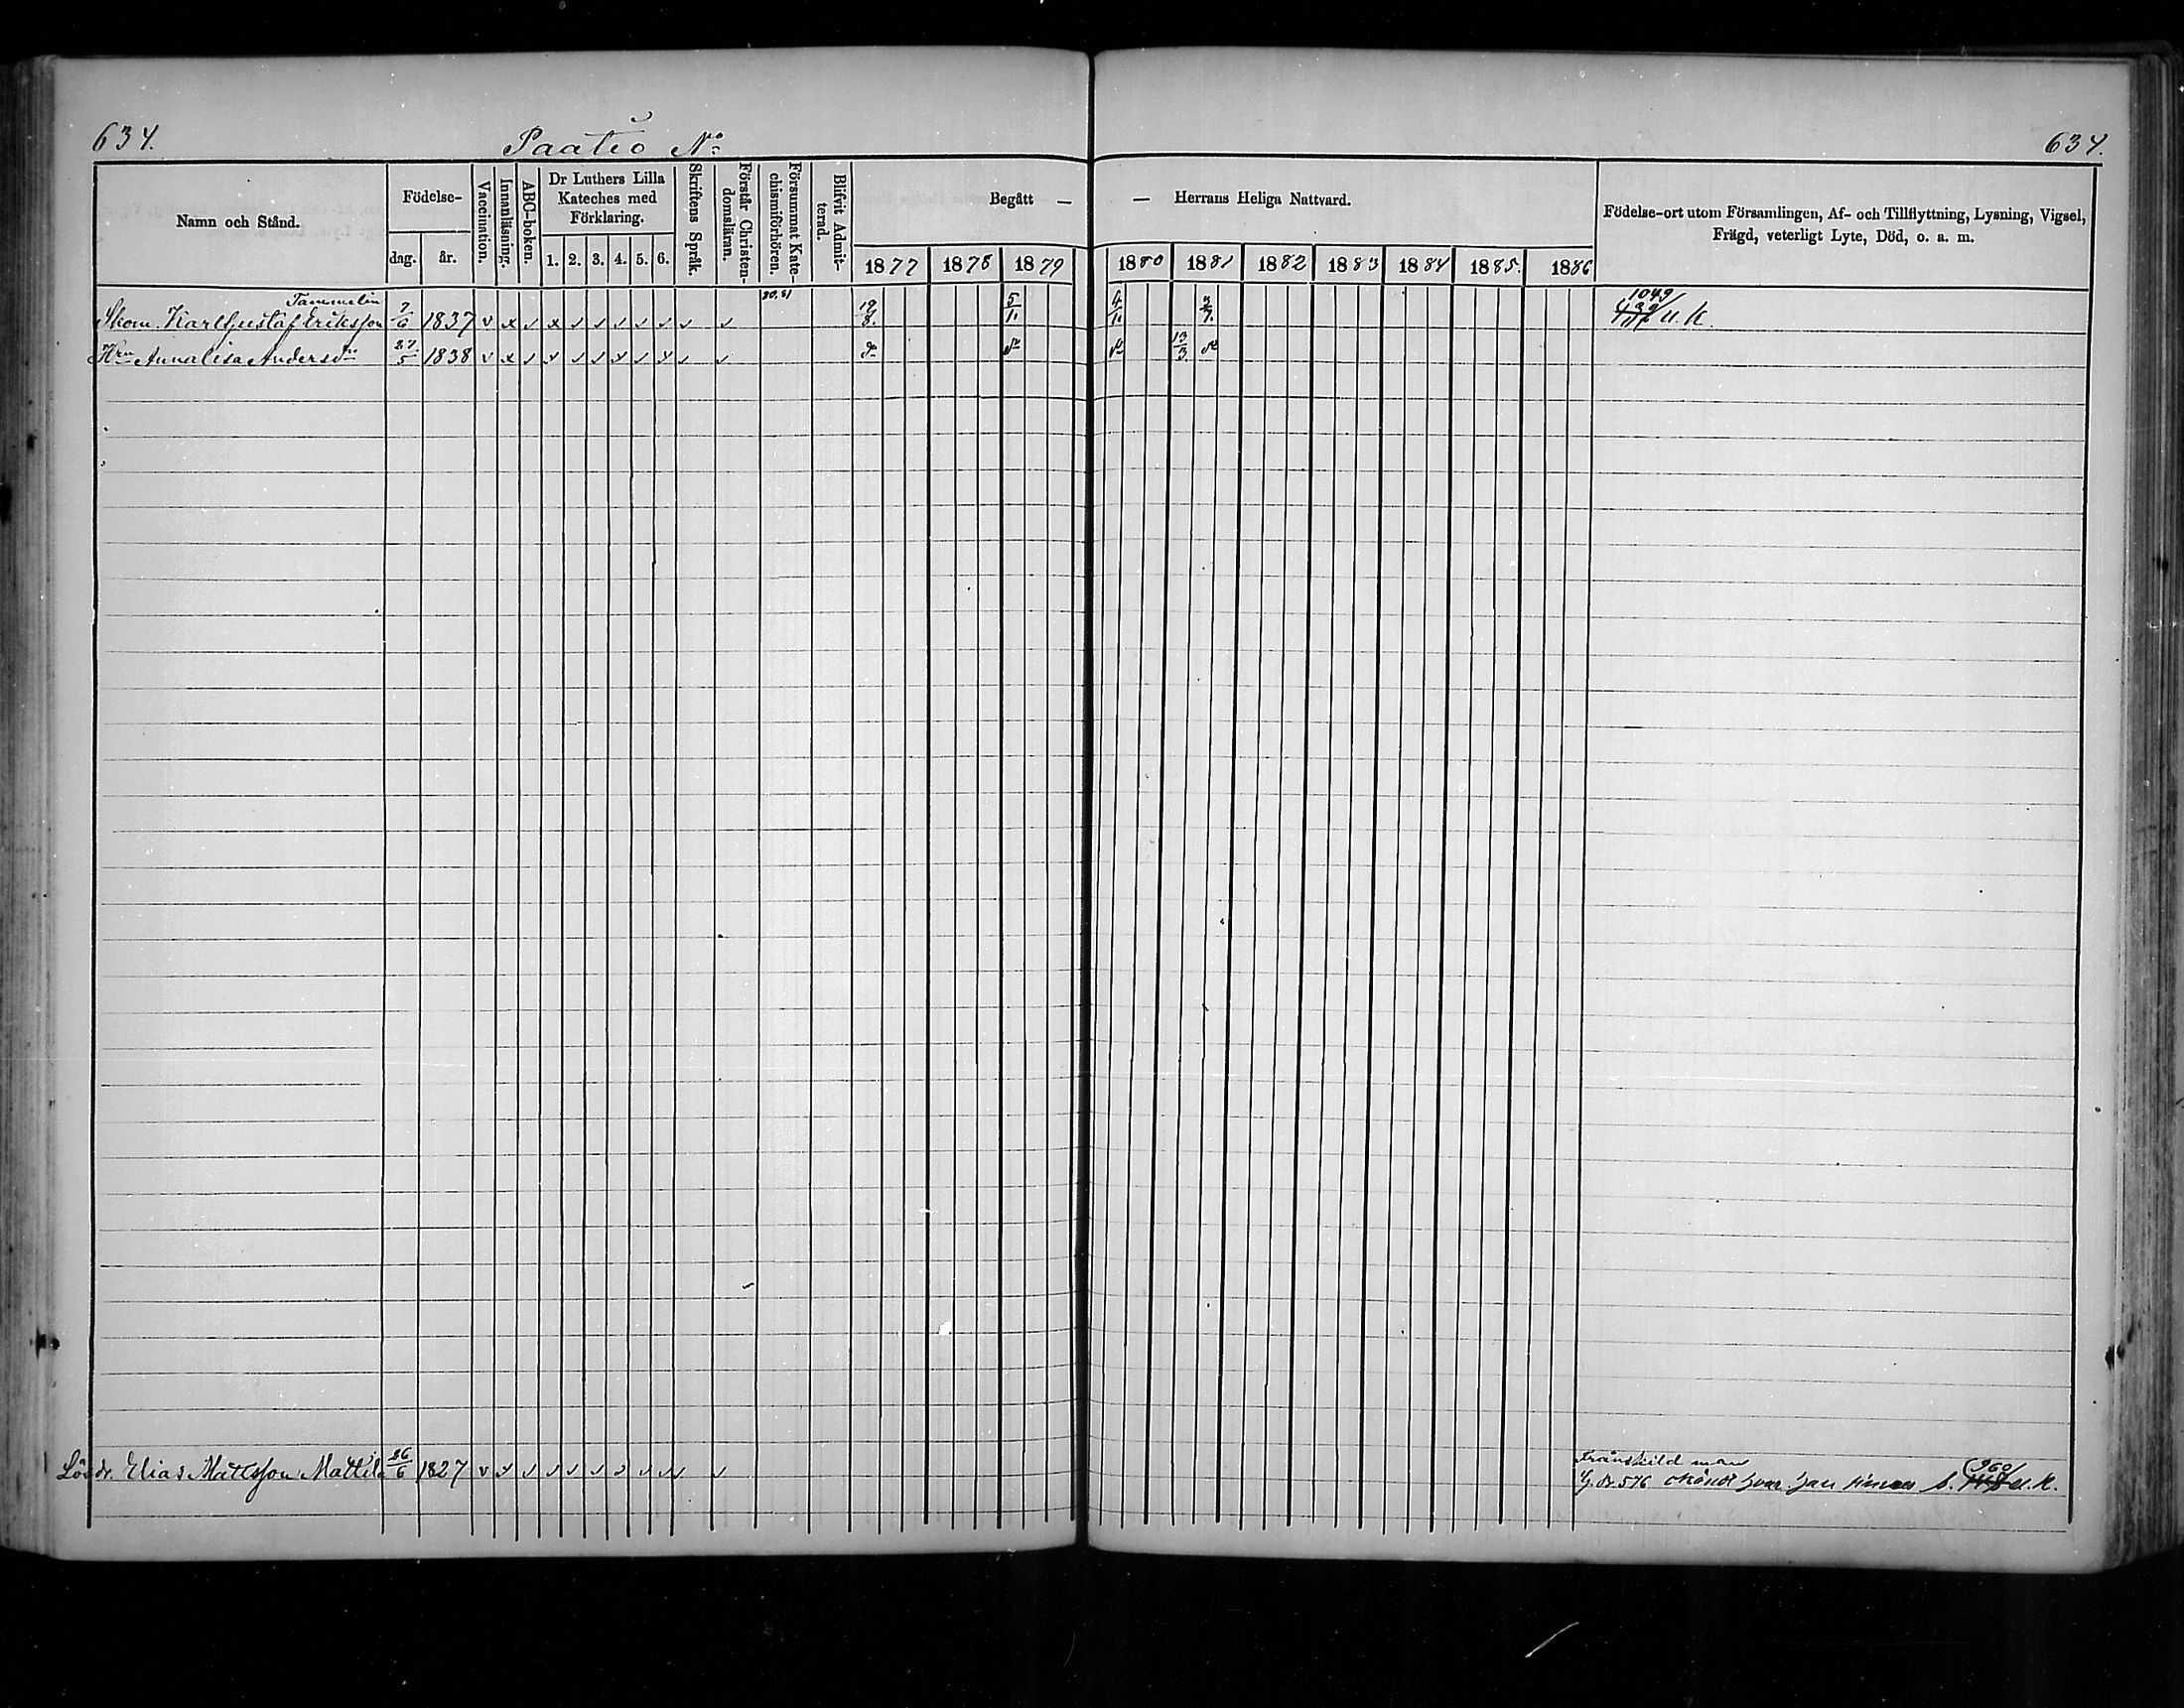 634.
Paatio No
634.
Namn och Stånd.
Födelse-
dag.
år.
Vaccination.
Innanläsning.
ABC-boken.
Dr Luthers Lilla
Kateches med
Förklaring.
1. 2. 3. 4. 5. 6.
Skriftens Språk.
Förstår Christen-
domsläran.
Försummat Kate-
chismiförhören.
Blifvit Admit-
terad.
Begått —
— Herrans Heliga Nattvard.
1877 1878 1879 1880 1881 1882 1883 1884 1885. 1886
Födelse-ort utom Församlingen, Af- och Tillflyttning, Lysning, Vigsel,
Frägd, veterligt Lyte, Död, o. a. m.
Tammelin 80,81 1049
Skom. Karl Gustaf Eriksson 7/6 1837 v x v x v v v v v v v 19/8. 5/11 4/11 3/7. u.k.
Hru Annalisa Andersdr 27/5 1838 v x v v v v x v x v v do do do 13/3 do
Frånskild man 960
Lösdr. Elias Mattsson Mattila 26/6 1827 v v v v v v v v v v v 576 u.k.